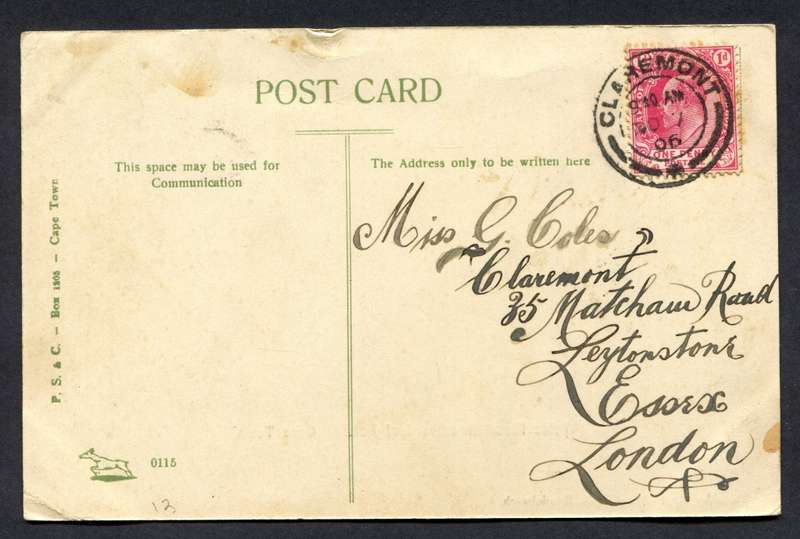 POST CARD
This space may be used for
Communication
The Address only to be written here
CLAREMONT
AM
06
1d
ONE PENNY
Miss G. Coles
"Claremont"
35 Matcham Road
Leytonstone
Essex
London
P. S. & C. – Box 1205 – Cape Town
0115
13